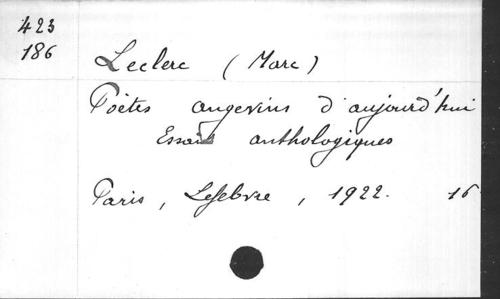 423
186
Leclerc (Marc)
Poètes angevins d'aujourd'hui
Essais anthologiques
Paris, Lefebvre, 1922. 16